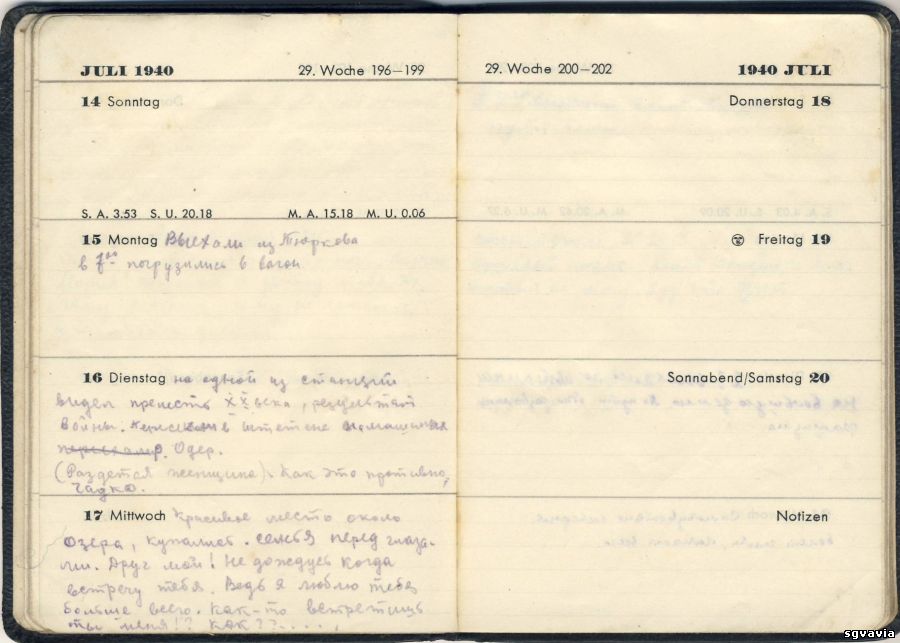 JULI 1940
29. Woche 196—199
14 Sonntag
S. A. 3.53 S. U. 20.18 M. A. 15.18 M. U. 0.06
15 Montag Выехали из Тюркова
в 7 погрузились в вагон
16 Dienstag на одной из станций
видел прелесть XX века, результат
войны. в Штетене
Одер.
(Раздется женщина). Как это противно,
гадко.
17 Mittwoch Красивое место около
озера, купались. семья перед глаза-
ми. Друг мой! Не дождусь когда
встречу тебя. Ведь я люблю тебя
больше всего. как-то встретишь
ты меня!? как??.....
29. Woche 200—202
1940 JULI
Donnerstag 18
Freitag 19
Sonnabend/Samstag 20
Notizen
sgvavia